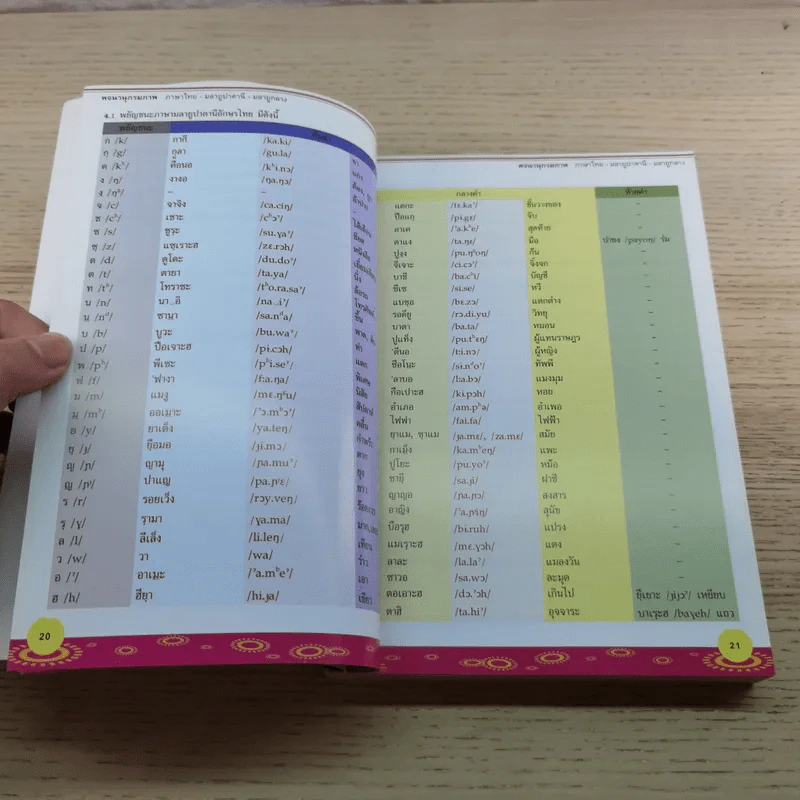 พจนานุกรมภาพ ภาษาไทย - มลายูปาตานี - มลายูกลาง
4.1 พยัญชนะภาษามลายูปาตานีอักษรไทย มีดังนี้
พยัญชนะ
ก /k/ กากี /ka.ki/ ขา
กฺ /g/ กูลา /gu.la/
ค /kʰ/ คีนอ /kʰi.nɔ/
ง /ŋ/ งางอ /ŋa.ŋɔ/
– –
จ /c/ จาจิง /ca.ciŋ/
ช /cʰ/ เชาะ /cʰɔˀ/
ซ /s/ ซูระ /su.ɣaˀ/
ซฺ /z/ แซฺเราะฮ /zɛ.rɔh/
ด /d/ ดูโดะ /du.doˀ/
ต /t/ ตายา /ta.ya/
ท /tʰ/ โทราซะ /tʰo.ra.saˀ/
น /n/ นา_อิ /na_iˀ/
/nᵈ/ /sa.nᵈa/ ชั้น
บ /b/ บูวะ /bu.waˀ/
ป /p/ ปือเจาะฮ /pi.cɔh/ แตก
พ /pʰ/ พีเซะ /pʰi.seˀ/ พิเศษ
ฟ /f/ ˈฟางา /f:a.ŋa/ นิสัย
ม /m/ แมงู /mɛ.ŋᵍu/ สัปดาห์
/mᵇ/ ออเมฺาะ /ˀɔ.mᵇɔˀ/ คลื่น
ย /y/ ยาเต็ง /ya.teŋ/ กำพร้า
ยฺ /j/ ยืฺอมอ /ji.mɔ/ ตาก
ญ /ɲ/ ญามุ /ɲa.muˀ/ ยุง
ปาแญ /pa.ɲᶡɛ/ ยาว
ร /r/ รอยเว็ง /rɔy.veŋ/
รฺ /ɣ/ รฺามา /ɣa.ma/
ล /l/ ลีเล็ง /li.leŋ/ เทียน
ว /w/ วา /wa/ ว่าว
อ /ˀ/ อาเมฺะ /ˀa.mᵇeˀ/ เอา
ฮ /h/ ฮียฺา /hi.ja/ เขียว
20
พจนานุกรมภาพ ภาษาไทย - มลายูปาตานี - มลายูกลาง
กลางคำ ท้ายคำ
แตกะ /tɛ.kaˀ/ ชั้นวางของ –
ปือแกฺ /pi.gɛ/ จับ –
อาเค /ˀa.kʰe/ สุดท้าย –
ตาแง /ta.ŋɛ/ มือ ปายง /payoŋ/ ร่ม
ปูงฺง /pu.ŋᵍoŋ/ ก้น –
จีเจาะ /ci.cɔˀ/ จิ้งจก –
บาชี /ba.cʰi/ บัญชี –
ซีเซ /si.se/ หวี –
แบซฺอ /bɛ.zɔ/ แตกต่าง –
รอดียู /rɔ.di.yu/ วิทยุ –
บาตา /ba.ta/ หมอน –
ปูแท็ง /pu.tʰɛŋ/ ผู้แทนราษฎร –
ˈตีนอ /t:i.nɔ/ ผู้หญิง –
ซือโนฺะ /si.nᵈoˀ/ ทัพพี –
ˈลาบอ /l:a.bɔ/ แมงมุม –
กือเปาะฮ /ki.pɔh/ หอย –
อำเภอ /am.pʰə/ อำเภอ –
ไฟฟา /fai.fa/ ไฟฟ้า –
ยฺาแม, ซฺาแม /ja.mɛ/, /za.mɛ/ สมัย –
กาเมฺ็ง /ka.mᵇeŋ/ แพะ –
ปูโยะ /pu.yoˀ/ หม้อ –
ซายฺี /sa.ji/ ฝาชี –
ญาญอ /ɲa.ɲɔ/ สงสาร –
สุนัข –
บือรุฮ /bi.ruh/ แปรง –
แมเรฺาะฮ /mɛ.ɣɔh/ แดง –
ลาละ /la.laˀ/ แมลงวัน –
ซาวอ /sa.wɔ/ ละมุด –
ดอเอาะฮ /dɔ.ˀɔh/ เกินไป ยฺียฺเาะ /jijɔˀ/ เหยียบ
ตาฮิ /ta.hiˀ/ อุจจาระ บาเรฺะฮ /baɣeh/ แถว
21